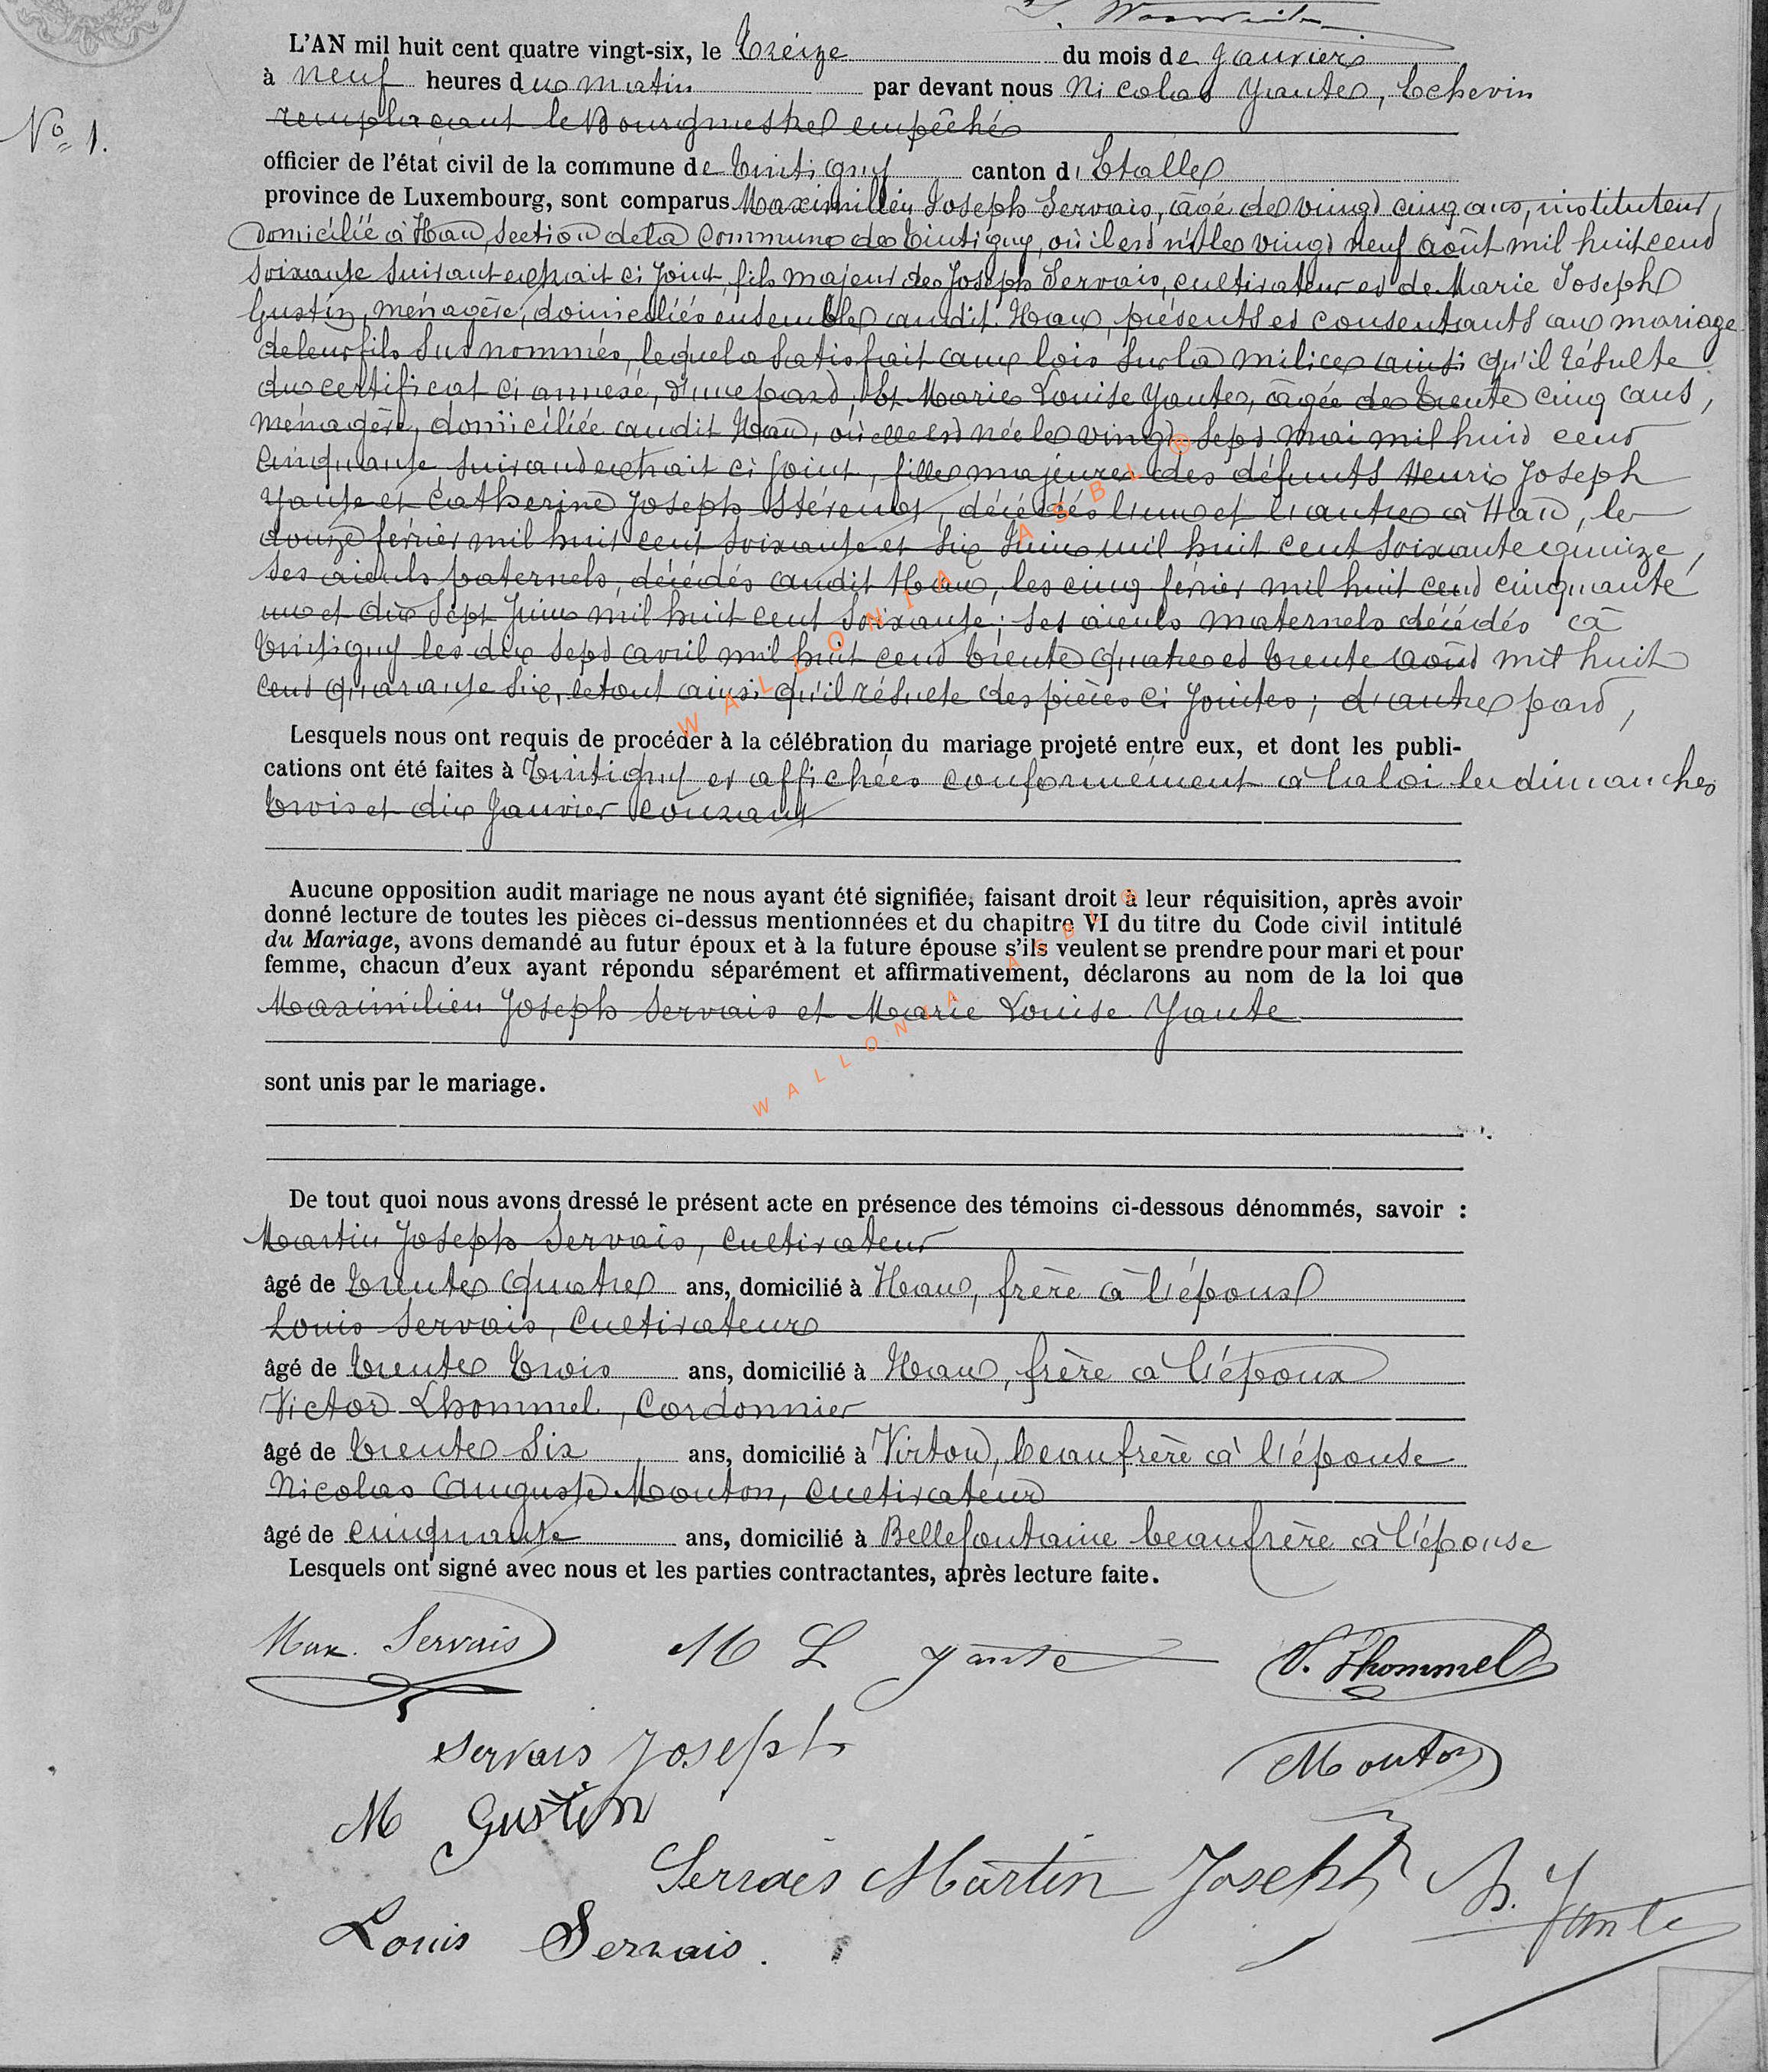 L'AN mil huit cent quatre vingt-six, le treize du mois de Janvier
à neuf heures du matin par devant nous Nicolas Yante, Echevin
remplaçant le Bourgmestre empêché
N° 1.
officier de l'état civil de la commune de Tintigny canton d'Etalle
province de Luxembourg, sont comparus Maximilien Joseph Servais, âgé de vingt cinq ans, instituteur,
domicilié à Han, section de la commune de Tintigny, où il est né le vingt neuf août mil huit cent
soixante suivant extrait ci joint, fils majeur de Joseph Servais, cultivateur et de Marie Joseph
Gustin, ménagère, domiciliés ensemble audit Han, présents et consentants au mariage
de leur fils susnommé, lequel a satisfait aux lois sur la milice ainsi qu'il résulte
du certificat ci annexé, d'une part, Et Marie Louise Yante, âgée de trente cinq ans,
ménagère, domiciliée audit Han, où elle est née le vingt sept mai mil huit cent
cinquante suivant extrait ci joint, fille majeure des défunts Henri Joseph
Yante et Catherine Joseph, décédés l'un et l'autre à Han, le
douze février mil huit cent soixante et six Juin mil huit cent soixante quinze,
ses aieuls paternels, décédés audit Han, les cinq février mil huit cent cinquante
un et dix sept Juin mil huit cent soixante; ses aieuls maternels décédés à
Tintigny les dix sept avril mil huit cent trente quatre et trente août mil huit
cent quarante six, le tout ainsi qu'il résulte des pièces ci jointes; d'autre part,
Lesquels nous ont requis de procéder à la célébration du mariage projeté entre eux, et dont les publi-
cations ont été faites à Tintigny et affichées conformément à la loi les dimanches
trois et dix Janvier courant
Aucune opposition audit mariage ne nous ayant été signifiée, faisant droit à leur réquisition, après avoir
donné lecture de toutes les pièces ci-dessus mentionnées et du chapitre VI du titre du Code civil intitulé
du Mariage, avons demandé au futur époux et à la future épouse s'ils veulent se prendre pour mari et pour
femme, chacun d'eux ayant répondu séparément et affirmativement, déclarons au nom de la loi que
Maximilien Joseph Servais et Marie Louise Yante
sont unis par le mariage.
De tout quoi nous avons dressé le présent acte en présence des témoins ci-dessous dénommés, savoir :
Martin Joseph Servais, cultivateur
âgé de trente quatre ans, domicilié à Han, frère à l'époux
Louis Servais, cultivateur
âgé de trente trois ans, domicilié à Han, frère à l'époux
Victor Lhommel, Cordonnier
âgé de trente six ans, domicilié à Virton, beaufrère à l'épouse
Nicolas Auguste Mouton, cultivateur
âgé de cinquante ans, domicilié à Bellefontaine beaufrère à l'épouse
Lesquels ont signé avec nous et les parties contractantes, après lecture faite.
Max. Servais M L Yante V. Lhommel
Servais Joseph Mouton
M Gustin
Servais Martin Joseph N. Yante
Louis Servais.
WALLONIA ASBL ®
WALLONIA ASBL ®